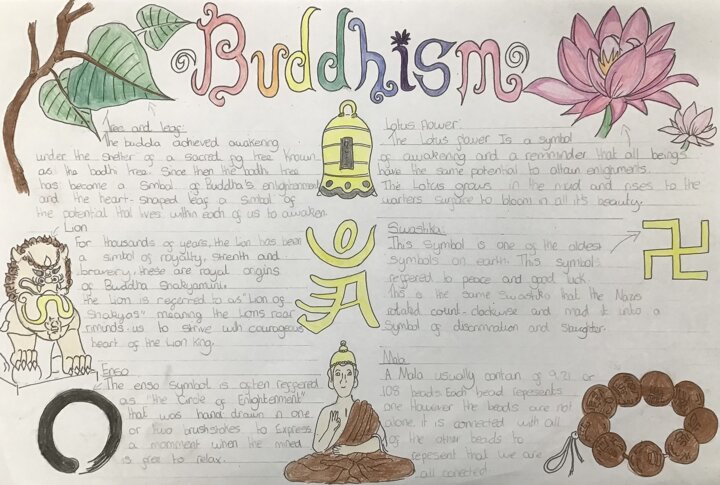 Buddhism
Tree and leaf:
The buddla achieved awakening
under the shelter of a sacred fig tree known
as the bodhi tree. Since then the bodhi tree
has become a simbol of Buddha's enlightenment
and the heart-shaped leaf a simbol of
the potential that lives within each of us to awaken.
Lion
For thousands of years, the lion has been
a simbol of royalty, strenth and
bravery, these are royal origins
of Buddha Shakyamuni.
the Lion is reffered to as "Lion of
Shakyas" meaning the Lions roar
riminds us to strive with courageous
heart of the Lion king.
Enso
The enso symbol is often reffered
as "the Circle of Enlightment"
that was hand drawn in one
or two brushstokes to Express
a momment when the mined
is free to relax.
Lotus flower:
The Lotus flower Is a symbol
of awakening and a remminder that all beings
have the same potential to attain enlighments.
The Lotus grows in the mud and rises to the
warters surface to bloom in all it's beauty.
Swastika:
This symbol is one of the oldest
symbols on earth. This symbol
reffered to peace and good luck.
This is the same Swastika that the Nazis
rotated count-clockwise and mad it into a
Symbol of discrimination and slaughter.
Mala
A Mala usually contain of 9, 21 or
108 beads. Each bead repesents
one However the beads are not
alone, it is connected with all
of the other beads to
repesent that we are
all conected.